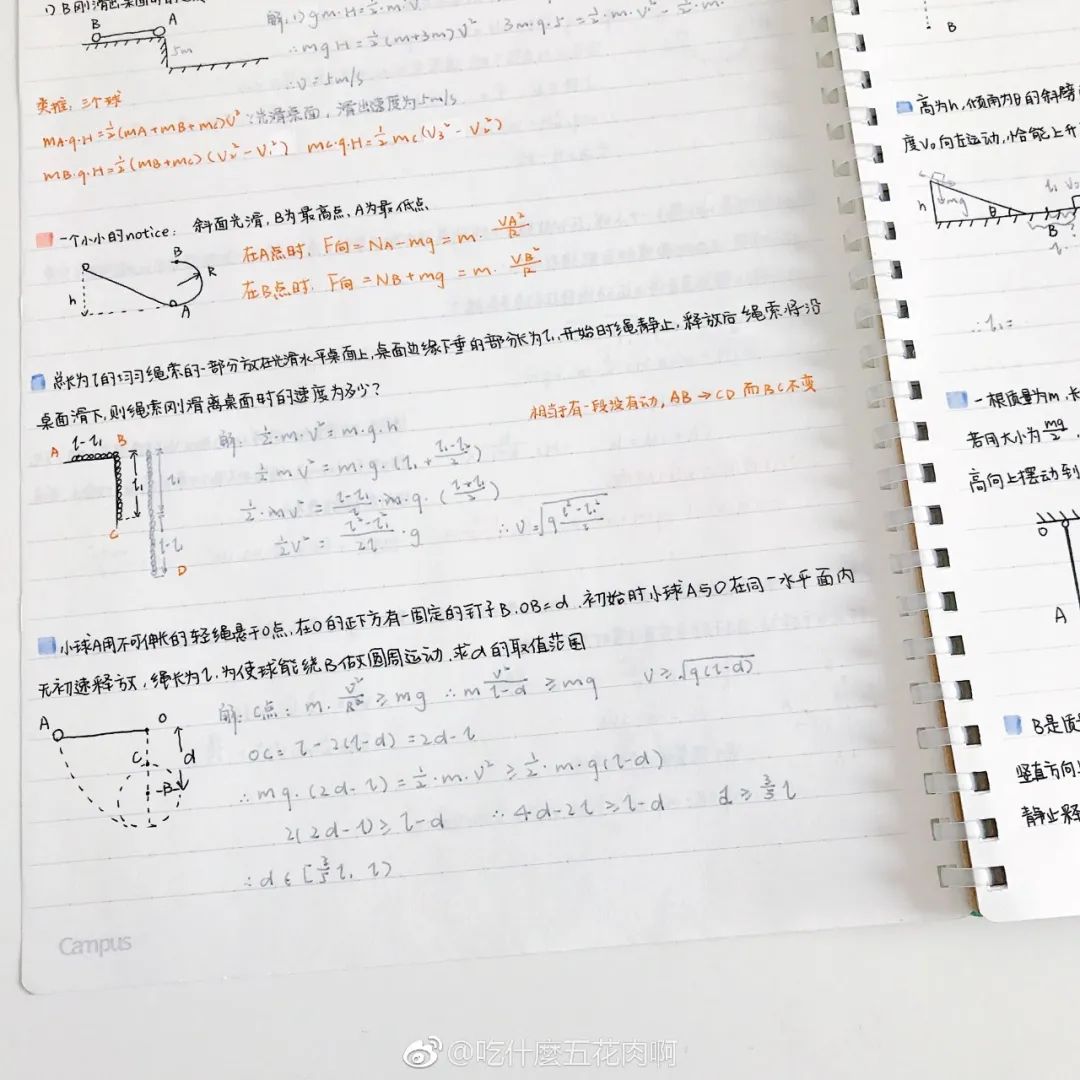 1) B刚滑出桌面时的速
B A
5m
解: 1) gm·H=½·m·V²
∴mgH=½(m+3m)V² 3m·g·5=½·m·V²-½·m·
∴v=5m/s
∵光滑桌面，滑出速度为5m/s
类推: 三个球
mA·g·H=½(mA+mB+mc)V²
mB·g·H=½(mB+mc)(V₂²-V₁²) mc·g·H=½mc(V₃²-V₂²)
一个小小的notice: 斜面光滑, B为最高点, A为最低点
在A点时, F向=NA-mg=m·VA²/R
在B点时, F向=NB+mg=m·VB²/R
B R A h
总长为l的均匀绳索的一部分放在光滑水平桌面上, 桌面边缘下垂的部分长为l₁, 开始时绳静止, 释放后绳索将沿
桌面滑下, 则绳索刚滑离桌面时的速度为多少?
相当于有一段没有动, AB→CD 而BC不变
A l-l₁ B
l₁ l₁
C
D
解: ½·m·v²=m·g·h
½mv²=m·g·(l₁+(l-l₁)/2)
½·mv²=(l-l₁)/l·m·g·((l+l₁)/2)
½v²=(l²-l₁²)/2l·g
小球A用不可伸长的轻绳悬于O点, 在O的正下方有一固定的钉子B, OB=d, 初始时小球A与O在同一水平面内
无初速释放, 绳长为l, 为使球能绕B做圆周运动, 求d的取值范围
A O
C d
B
解: C点: m·V²/R≥mg ∴m V²/(l-d)≥mg V≥√g(l-d)
OC=l-2(l-d)=2d-l
∴mg·(2d-l)=½·m·V²≥½·m·g(l-d)
2(2d-l)≥l-d ∴4d-2l≥l-d d≥3/5 l
∴d∈[3/5 l, l)
Campus
B
高为h, 倾角为θ的斜劈
度V₀向左运动, 恰能上升
h mg θ B
∴l₁=
一根质量为m, 长
若用大小为mg/2
高向上摆动到
O
A
B是质
竖直方向
静止释
@吃什麼五花肉啊